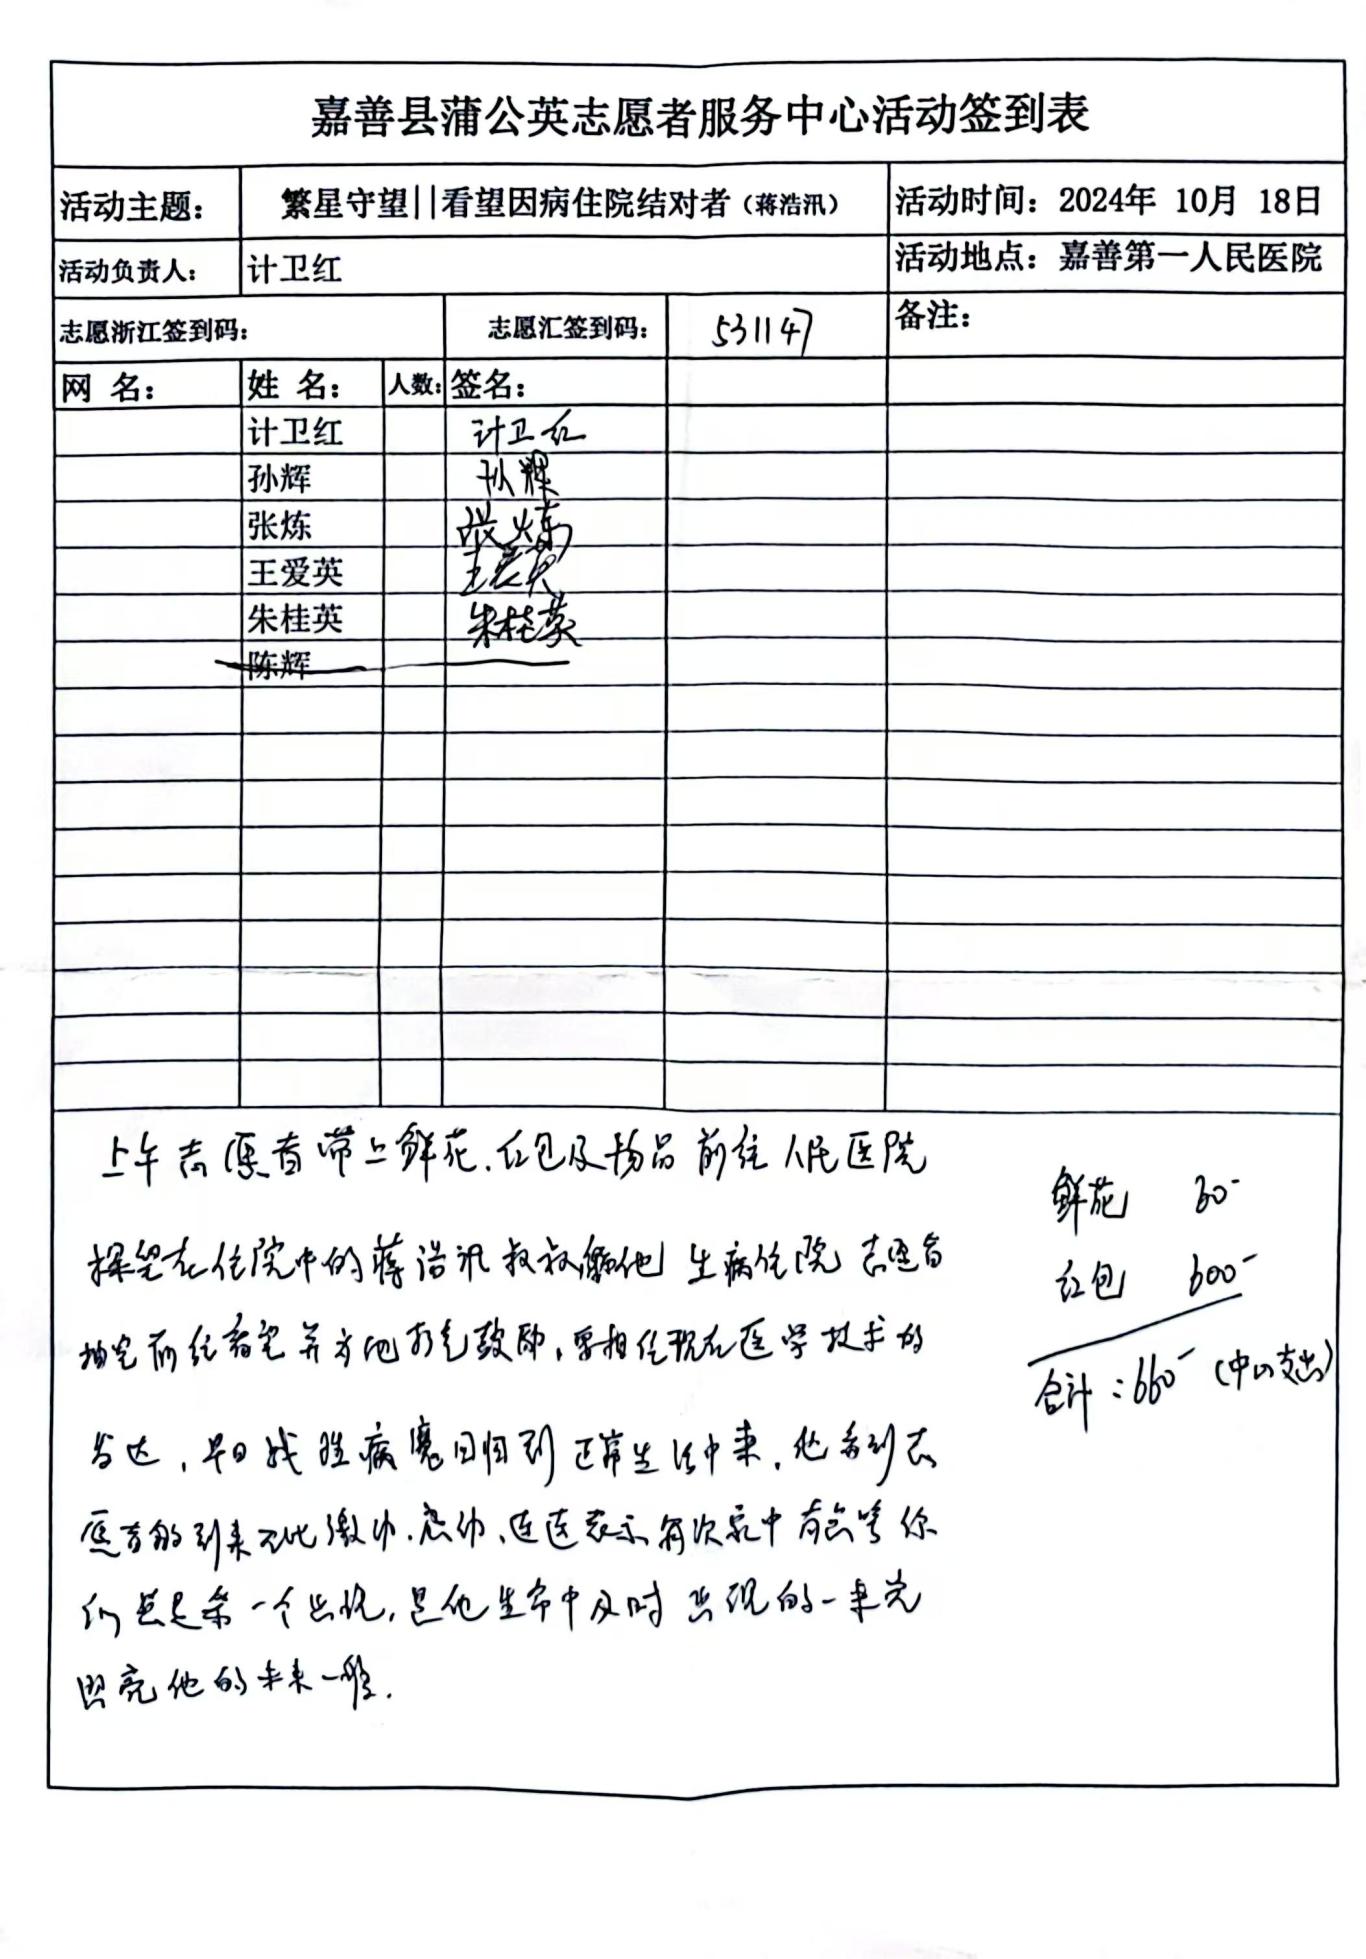 嘉善县蒲公英志愿者服务中心活动签到表
活动主题： 繁星守望||看望因病住院结对者（蒋浩汛） 活动时间：2024年 10月 18日
活动负责人： 计卫红 活动地点：嘉善第一人民医院
志愿浙江签到码： 志愿汇签到码： 531147 备注：
网 名： 姓 名： 人数： 签名：
计卫红 计卫红
孙辉 孙辉
张炼 张炼
王爱英 王爱英
朱桂英 朱桂英
陈辉
上午志愿者带上鲜花、红包及物品前往人民医院
探望在住院中的蒋浩汛叔叔 他生病住院志愿者
抽空前往看望并为他打气鼓励，要相信现在医学技术的
发达，早日战胜病魔回归到正常生活中来，他看到志
愿者的到来无比激动、感动、连连表示每次 中 你
们总是第一个出现，是他生命中及时出现的一束光
照亮他的未来一般.
鲜花 60-
红包 600-
合计：660-（中心支出）